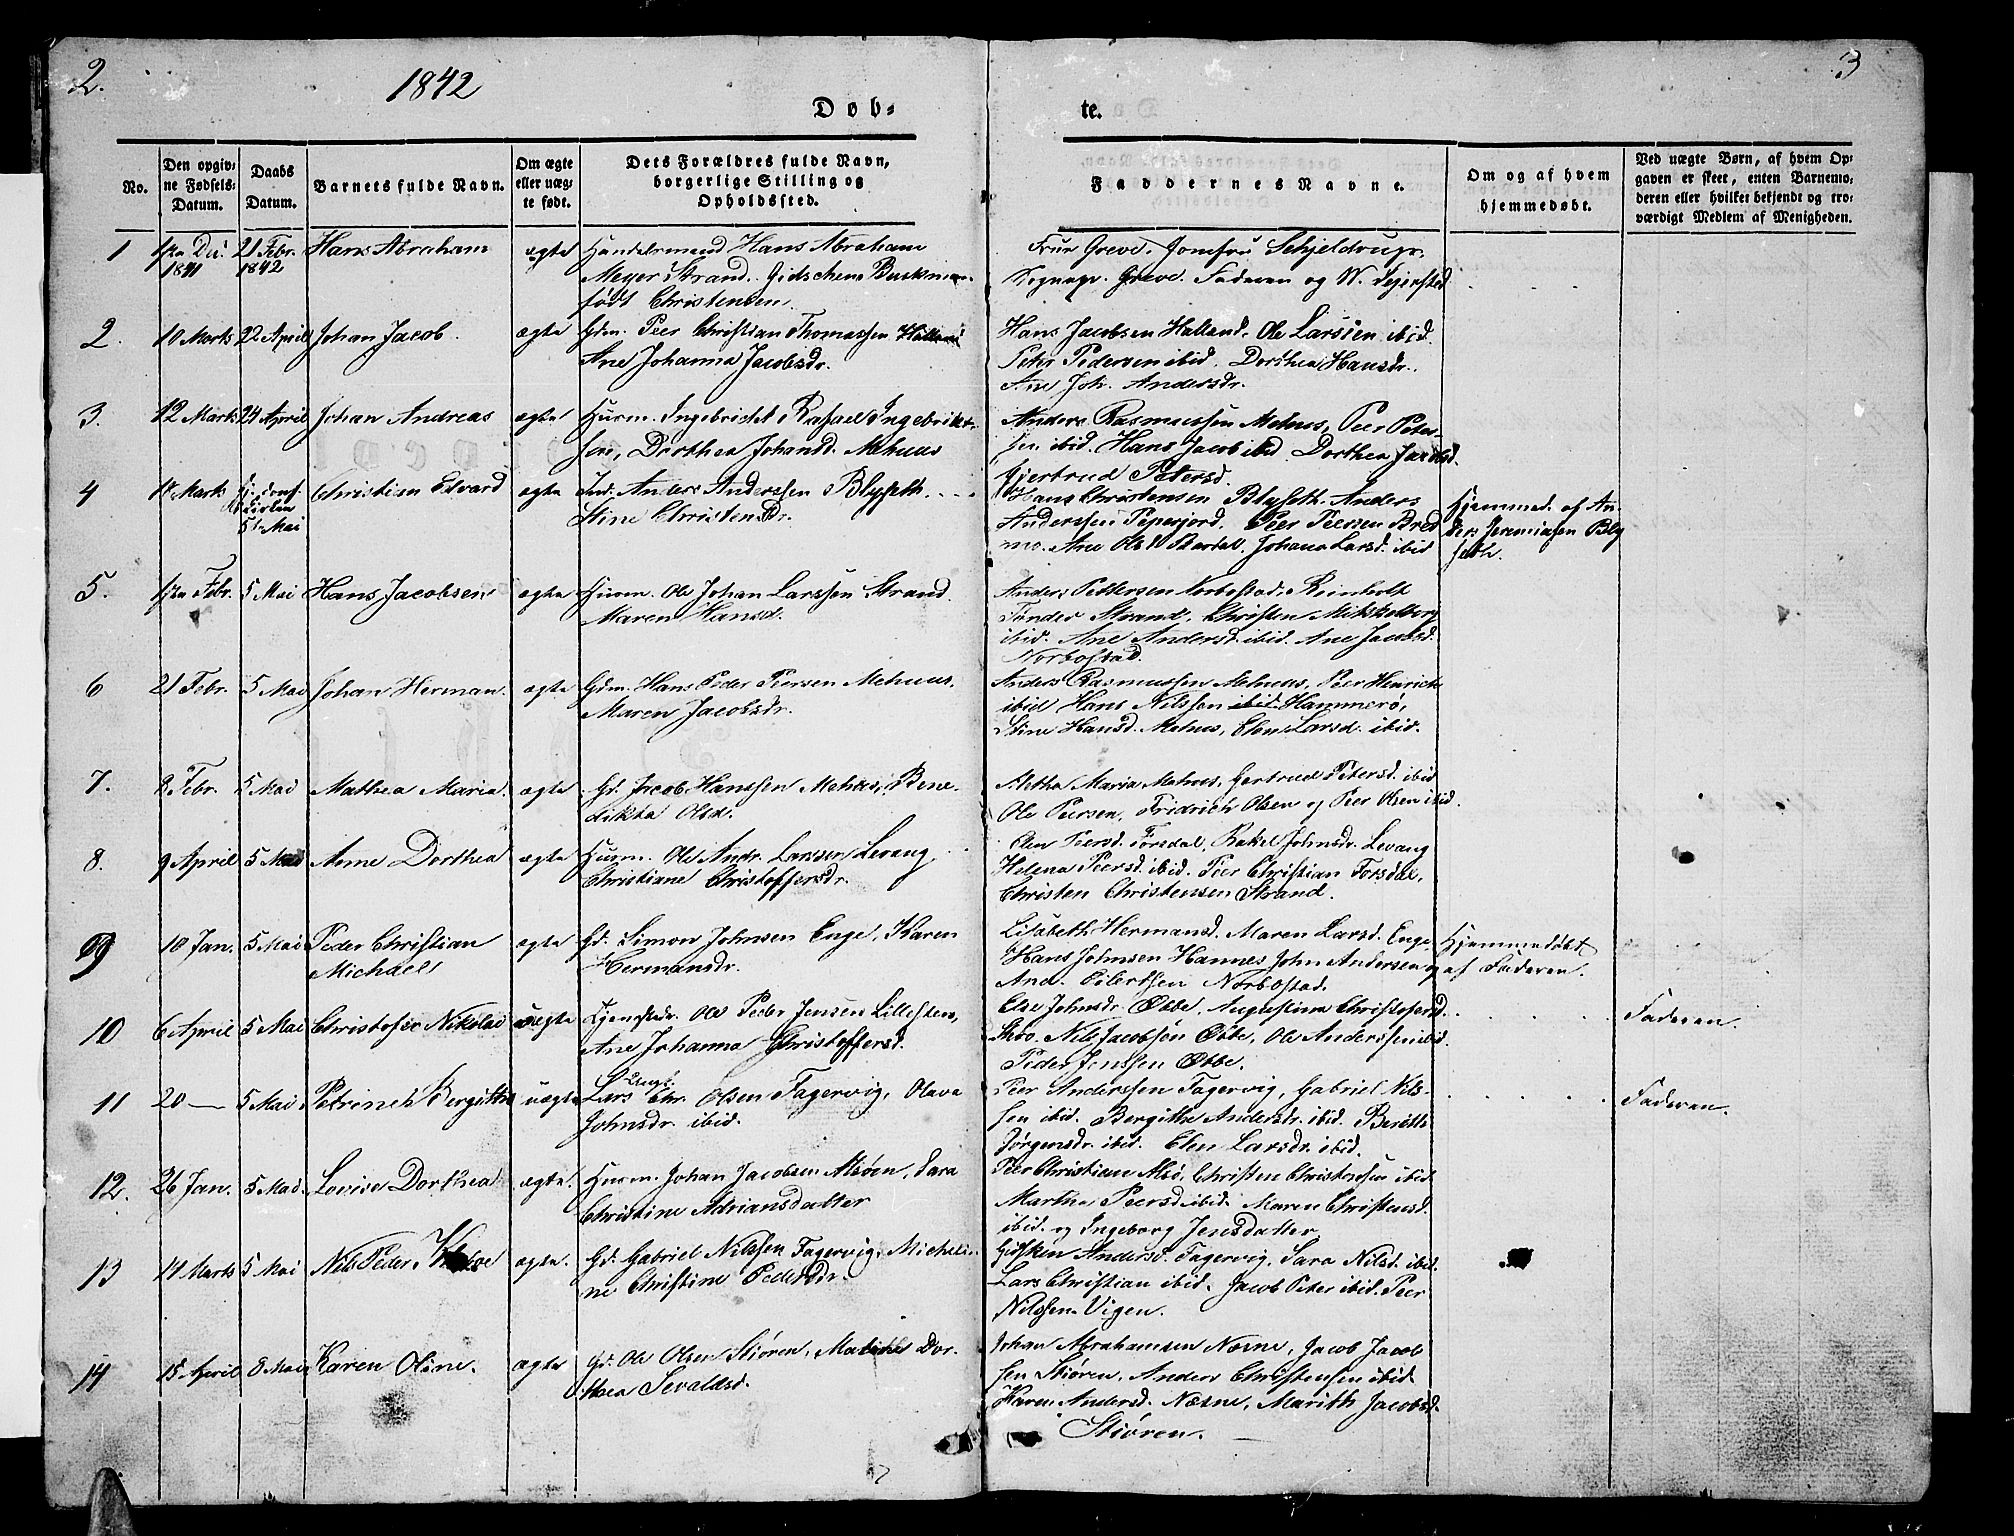 2.
1842
3
Døb-
te.
No.
Den opgiv-
ne Fødsels-
Datum.
Daabs
Datum.
Barnets fulde Navn.
Om ægte
eller uæg-
te født.
Dets Forældres fulde Navn,
borgerlige Stilling og
Opholdssted.
Faddernes Navne.
Om og af hvem
hjemmedøbt.
Ved uægte Børn, af hvem Op-
gaven er skeet, enten Barnemo-
deren eller hvilket bekjendt og tro-
værdigt Medlem af Menigheden.
1
1841
21 Febr.
1842
Hans Abraham
ægte
Handelsmand Hans Abraham
Meyer Strand. Gidschena
født Christensen.
Frue Greve, Jomfru Schjeldrup,
Sognepr. Greve. Faderen og W.
2.
10 Marts
22 April
Johan Jacob.
ægte
Gdm. Peer Christian Thomassen
Ane Johanna Jacobsdr.
Hans Jacobsen Halland. Ole Larssen ibid.
Peter Pedersen ibid. Dorthea Hansdr.
Ane Joh. Andersdr.
3.
12 Marts
24 April
Johan Andreas
ægte
Husm. Ingebricht Rafael Ingebrikt-
sen, Dorthea Johansd. Mehuus
Anders Rasmussen Mehus, Peer Peter-
sen ibid. Hans Jacob ibid. Dorthea Jacobsd.
Gjertrud Petersd.
4
18 Marts
5te Mai
Christian Edvard
ægte
Ind. Anders Anderssen Blyseth.
Stine Christensdr.
Hans Christensen Blyseth. Anders
Anderssen Pepersjord. Peer Peersen Bred
mo. Ane Olsd. Johana Larsd. ibid
Hjemmed. af An-
ders Jeremiasen Bly
seth.
5.
Febr.
5 Mai
Hans Jacobsen
ægte
Husm. Ole Johan Larssen Strand.
Maren Hansd.
Anders Pettersen Norbostad. Reinholt
Tønder Strand. Christen Mikkelborg
ibid. Ane Andersd. ibid. Ane Jacobsd.
Norbostad.
6
21 Febr.
5 Mai
Johan Herman.
ægte
Gdm. Hans Peder Peersen Mehuus.
Maren Jacobsdr.
Anders Rasmussen Mehuus, Peer Henrich
ibid Hans Nilssen ibid Hammerø,
Stine Hansd. Mehus, Elen Larsd. ibid.
7.
2 Febr.
5 Mai
Mathea Maria.
ægte
Gd. Jacob Hanssen Mehus, Bene-
dikta Olsd.
Aletha Maria Mehus, Gertrud Petersd. ibid
Ole Peersen, Fridrich Olsen og Peer Olsen ibid.
8.
9 April
5 Mai
Anne Dorthea
ægte
Husm. Ole Andr. Larssen Levang
Christiane Christoffersdr.
Elen Peersd. Forsdal, Rakel Johnsdr. Levang
Helena Peersd. ibid. Peer Christian Forsdal,
Christen Christensen Strand.
9
10 Jan.
5 Mai
Peder Christian
Michael
ægte
Gd. Simon Johnsen Enge, Karen
Hermansdr.
Lisabeth Hermansd. Maren Larsd. Enge.
Hans Johnsen Hannes John Andersen og
And. Eilertsen Norbostad.
Hjemmedøbt
af Faderen.
10
6 April
5 Mai
Christofer Nikolai
uægte
Tjenstdr. Ole Peder Jensen Lillesten,
Ane Johanna Christoffersd.
Else Johnsdr. Øbbe, Augustina Christofersd.
Skoo. Nils Jacobsen Øbbe, Ole Anderssen ibid.
Peder Jenssen Øbbe.
Faderen.
11
20 —
5 Mai
Petrine Bergitha
uægte
Ungk.
Lars Chr. Olsen Fagervig, Olava
Johnsdr. ibid.
Peer Anderssen Fagervig, Gabriel Nils-
sen ibid. Bergitha Andersdr. ibid. Berith
Jørgensdr. ibid. Elen Larsdr. ibid.
Faderen.
12.
26 Jan.
5 Mai
Lovise Dorthea
ægte.
Husm. Johan Jacobsen Alsøen, Sara
Christine Adriansdatter
Peer Christian Alsø, Christen Christofersen ibid
Martha Peersd. ibid. Maren Christensd.
ibid. og Ingeborg Jensdatter
13
14 Marts
5 Mai
Nils Peder
ægte.
Gd. Gabriel Nilssen Fagervig, Micheli-
ne Christine Pedersdr.
Gidsken Andersd. Fagervig, Sara Nilsd. ibid.
Lars Christian ibid. Jacob Peter ibid. Peer
Nilssen Vigen.
14
15 April
8 Mai
Karen Oline.
ægte
Gd. Ole Olsen Stiøren, Mathea Dor-
thea Sevaldsd.
Johan Abrahamsen Næsne, Jacob Jacob
sen Stiøren, Anders Christensen ibid
Karen Andersd. Næsne, Marith Jacobsd.
Stiøren.